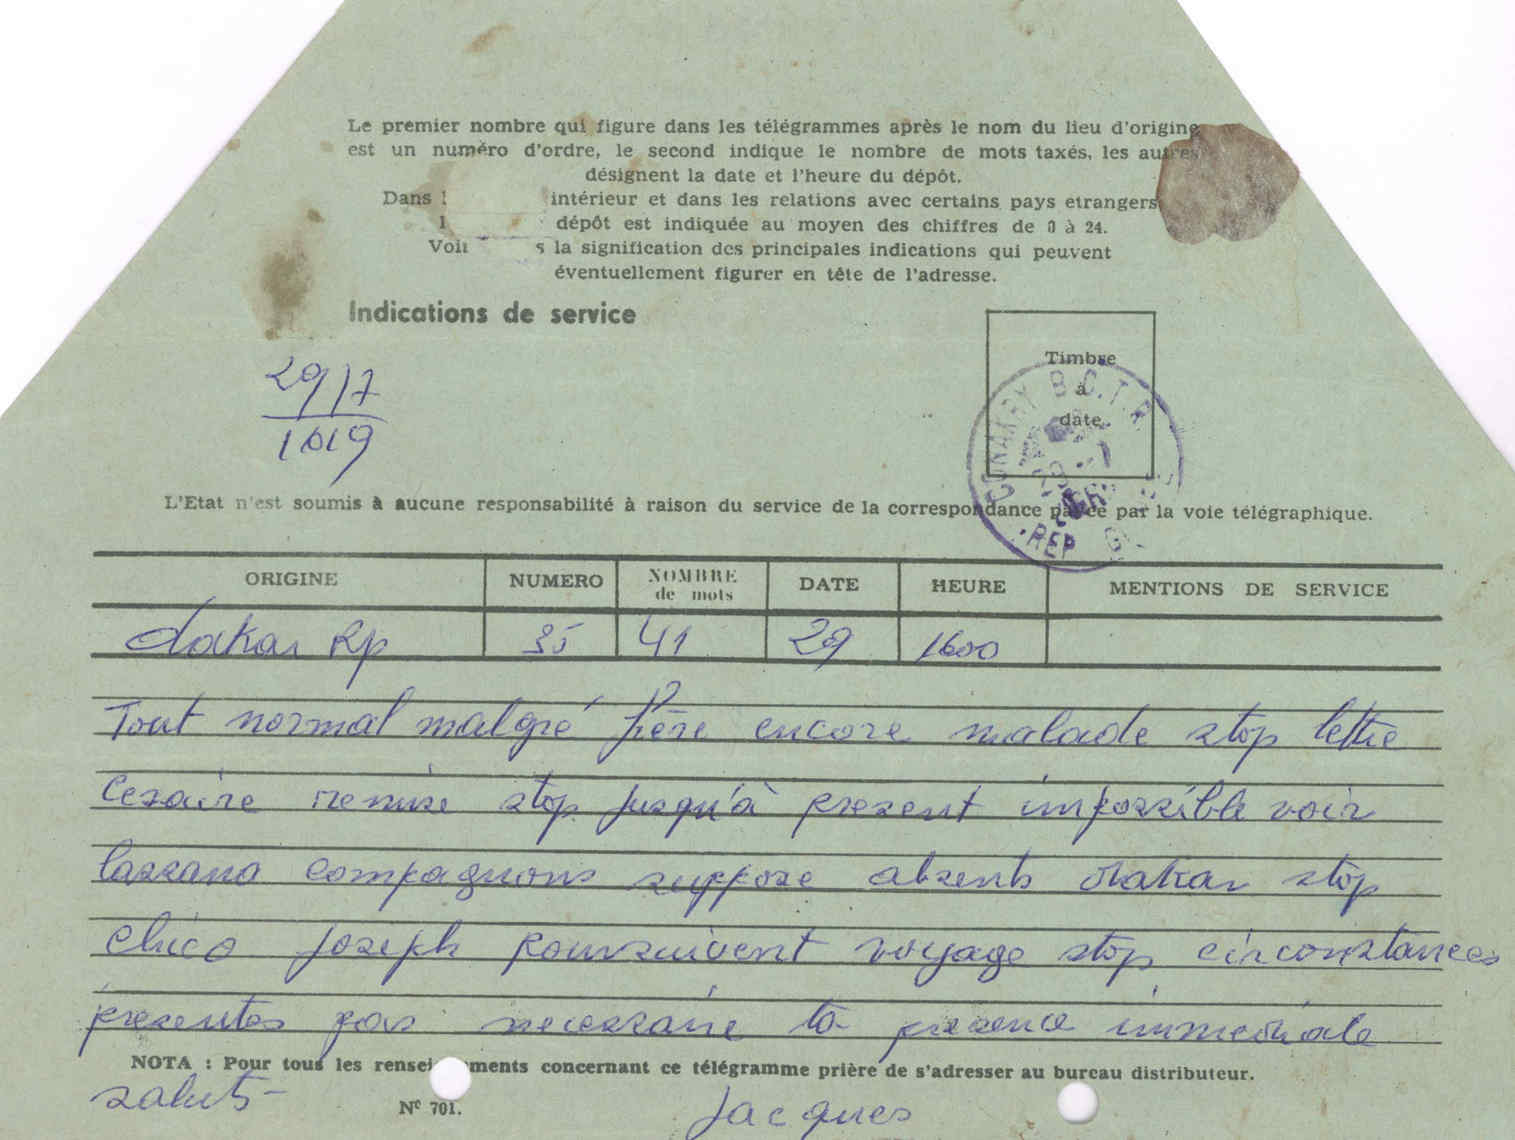 Le premier nombre qui figure dans les télégrammes après le nom du lieu d'origine
est un numéro d'ordre, le second indique le nombre de mots taxés, les autres
désignent la date et l'heure du dépôt.
Dans intérieur et dans les relations avec certains pays etrangers
dépôt est indiquée au moyen des chiffres de 0 à 24.
Voir la signification des principales indications qui peuvent
éventuellement figurer en tête de l'adresse.
Indications de service
29/7
1019
Timbre
à
date
CONAKRY B.C.T.R.
REP G
L'Etat n'est soumis à aucune responsabilité à raison du service de la correspondance privée par la voie télégraphique.
ORIGINE NUMERO NOMBRE de mots DATE HEURE MENTIONS DE SERVICE
dakar Rp 35 41 29 1600
Tout normal malgré père encore malade stop lettre
Cezaire remise stop jusqu'à présent impossible voir
lassana compagnons suppose absents dakar stop
chico joseph poursuivent voyage stop circonstances
presentes pas necessaire ta presence immediate
NOTA : Pour tous les renseignements concernant ce télégramme prière de s'adresser au bureau distributeur.
saluts-
N° 701.
Jacques